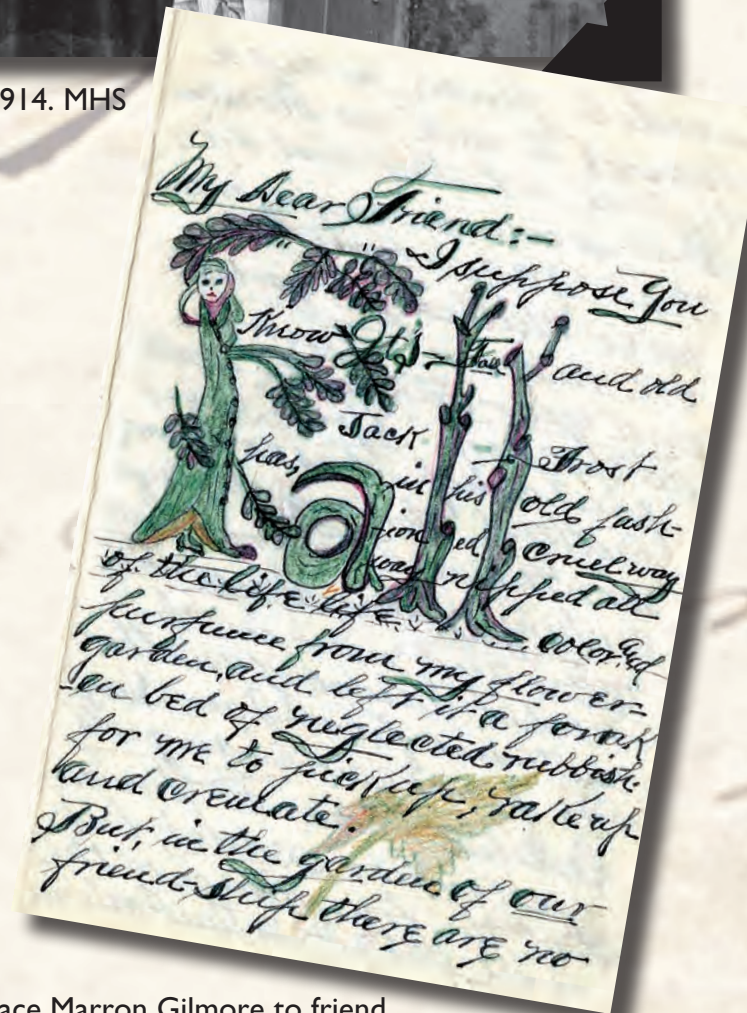 914. MHS
My Dear Friend:-
I suppose You
Know It's - Fall and old
Fall
Jack Frost
has, in his old fash-
ion ed cruel way
was nipped all
of the life life, color, and
perfume from my flower-
garden, and left it a
-en bed of neglected rubbish
for me to pick up, rake up
and cremate.
But, in the garden of our
friend-ship there are no
ace Marron Gilmore to friend